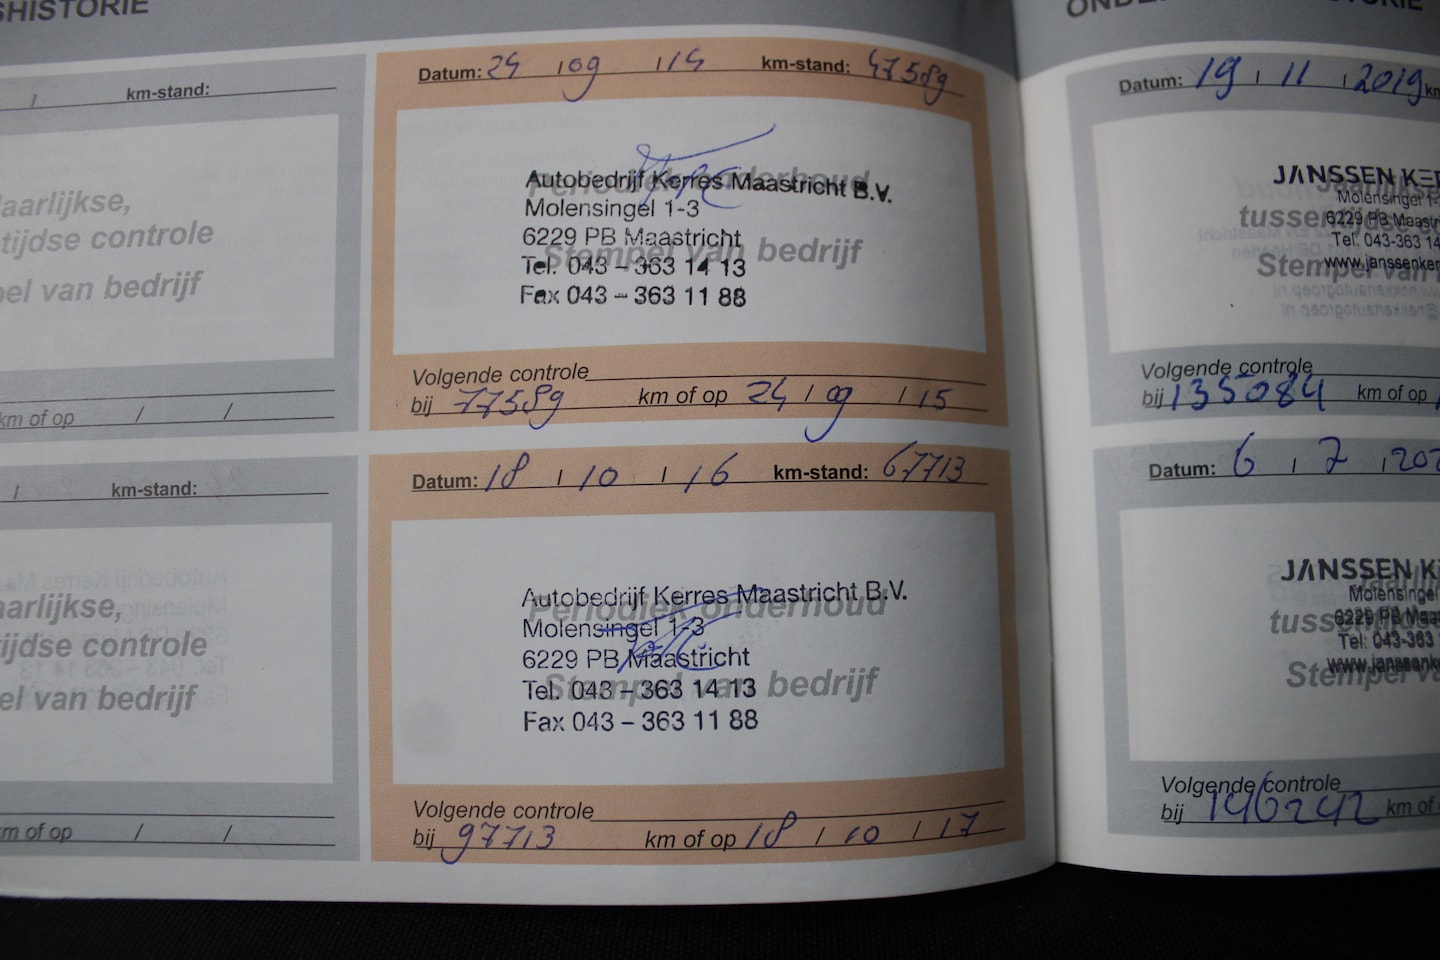 SHISTORIE
/ km-stand:
aarlijkse,
tijdse controle
pel van bedrijf
km of op / /
/ km-stand:
aarlijkse,
ijdse controle
el van bedrijf
km of op / /
Datum: 24 / 09 / 14 km-stand: 47589
Periodiek onderhoud
Autobedrijf Kerres Maastricht B.V.
Molensingel 1-3
6229 PB Maastricht
Stempel van bedrijf
Tel. 043 – 363 14 13
Fax 043 – 363 11 88
Volgende controle
bij 77589 km of op 24 / 09 / 15
Datum: 18 / 10 / 16 km-stand: 67713
Autobedrijf Kerres Maastricht B.V.
Periodiek onderhoud
Molensingel 1-3
6229 PB Maastricht
Stempel van bedrijf
Tel. 043 – 363 14 13
Fax 043 – 363 11 88
Volgende controle
bij 97713 km of op 18 / 10 / 17
Datum: 19 / 11 / 2019 km
JANSSEN KER
Molensingel 1-
tussentijdse
6229 PB Maastr
Tel: 043-363 14
www.janssenker
Stempel van
Volgende controle
bij 135084 km of op
Datum: 6 / 7 / 202
JANSSEN K
Molensingel
6229 PB Maas
Tel: 043-363
www.janssen
Stempel va
Volgende controle
bij 146242 km of